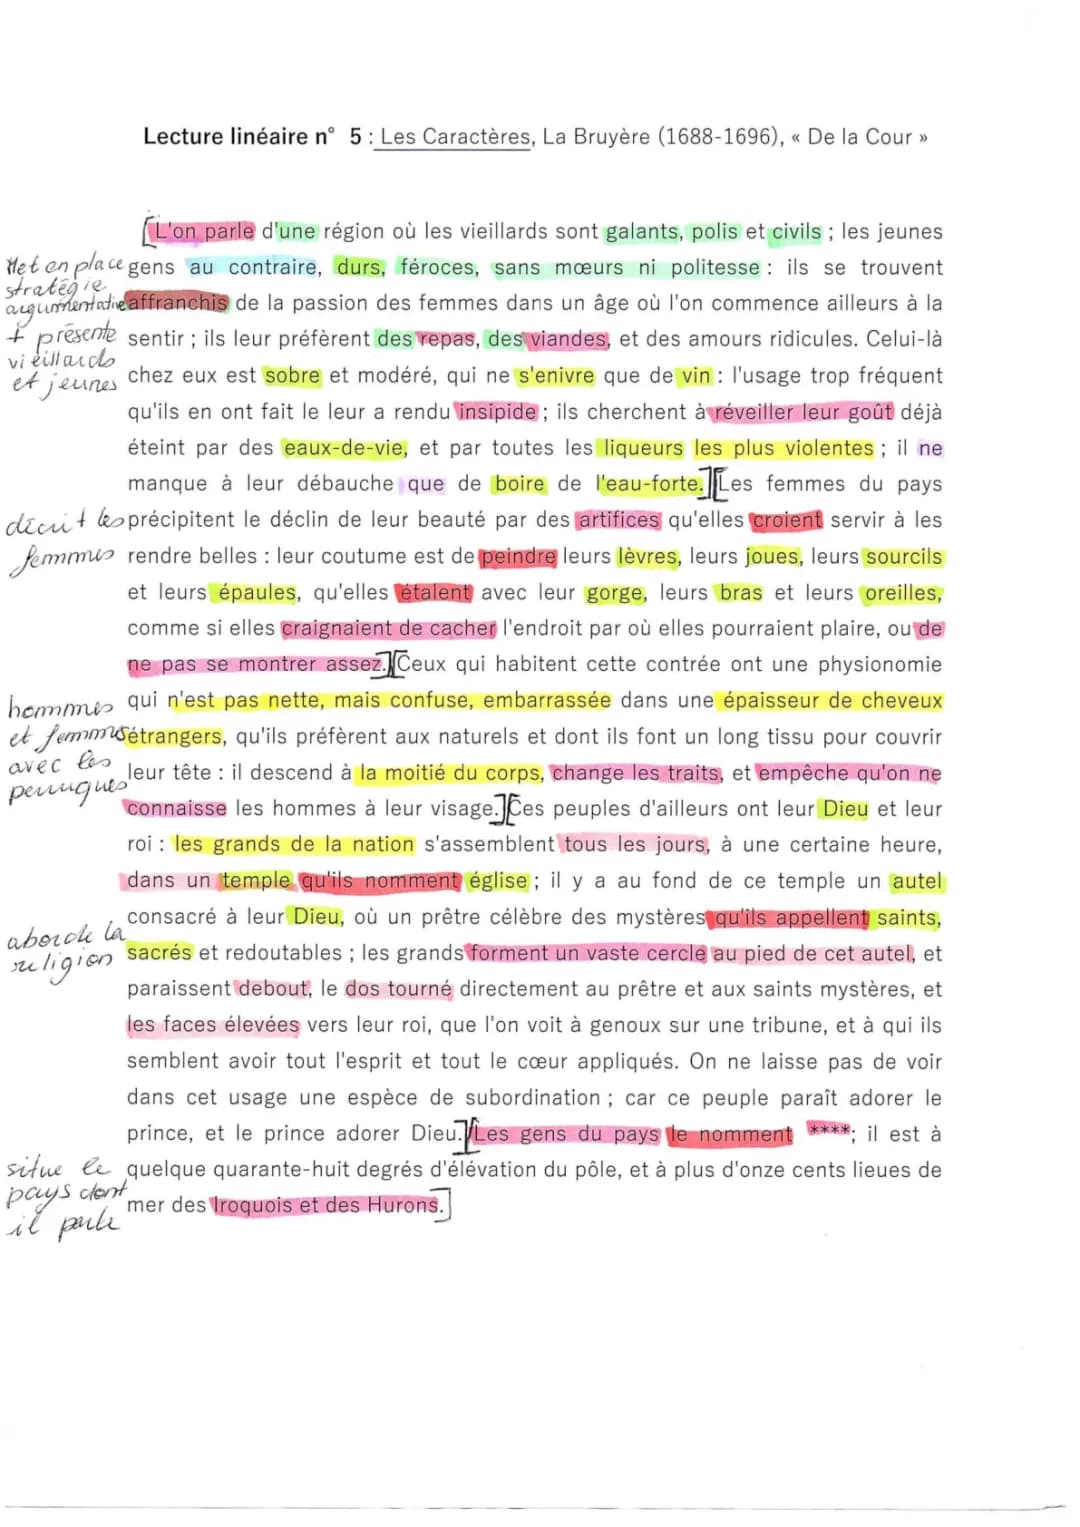 Lecture linéaire n° 5 : Les Caractères, La Bruyère (1688-1696), « De la Cour »
[L'on parle d'une région où les vieillards sont galants, polis et civils ; les jeunes
gens au contraire, durs, féroces, sans mœurs ni politesse : ils se trouvent
affranchis de la passion des femmes dans un âge où l'on commence ailleurs à la
sentir ; ils leur préfèrent des repas, des viandes, et des amours ridicules. Celui-là
chez eux est sobre et modéré, qui ne s'enivre que de vin : l'usage trop fréquent
qu'ils en ont fait le leur a rendu insipide ; ils cherchent à réveiller leur goût déjà
éteint par des eaux-de-vie, et par toutes les liqueurs les plus violentes ; il ne
manque à leur débauche que de boire de l'eau-forte.][Les femmes du pays
précipitent le déclin de leur beauté par des artifices qu'elles croient servir à les
rendre belles : leur coutume est de peindre leurs lèvres, leurs joues, leurs sourcils
et leurs épaules, qu'elles étalent avec leur gorge, leurs bras et leurs oreilles,
comme si elles craignaient de cacher l'endroit par où elles pourraient plaire, ou de
ne pas se montrer assez.][Ceux qui habitent cette contrée ont une physionomie
qui n'est pas nette, mais confuse, embarrassée dans une épaisseur de cheveux
étrangers, qu'ils préfèrent aux naturels et dont ils font un long tissu pour couvrir
leur tête : il descend à la moitié du corps, change les traits, et empêche qu'on ne
connaisse les hommes à leur visage.][Ces peuples d'ailleurs ont leur Dieu et leur
roi : les grands de la nation s'assemblent tous les jours, à une certaine heure,
dans un temple qu'ils nomment église ; il y a au fond de ce temple un autel
consacré à leur Dieu, où un prêtre célèbre des mystères qu'ils appellent saints,
sacrés et redoutables ; les grands forment un vaste cercle au pied de cet autel, et
paraissent debout, le dos tourné directement au prêtre et aux saints mystères, et
les faces élevées vers leur roi, que l'on voit à genoux sur une tribune, et à qui ils
semblent avoir tout l'esprit et tout le cœur appliqués. On ne laisse pas de voir
dans cet usage une espèce de subordination ; car ce peuple paraît adorer le
prince, et le prince adorer Dieu.][Les gens du pays le nomment ****; il est à
quelque quarante-huit degrés d'élévation du pôle, et à plus d'onze cents lieues de
mer des Iroquois et des Hurons.]
Met en place
stratégie
argumentative
+ présente
vieillards
et jeunes
décrit les
femmes
hommes
et femmes
avec les
perruques
aborde la
religion
situe le
pays dont
il parle